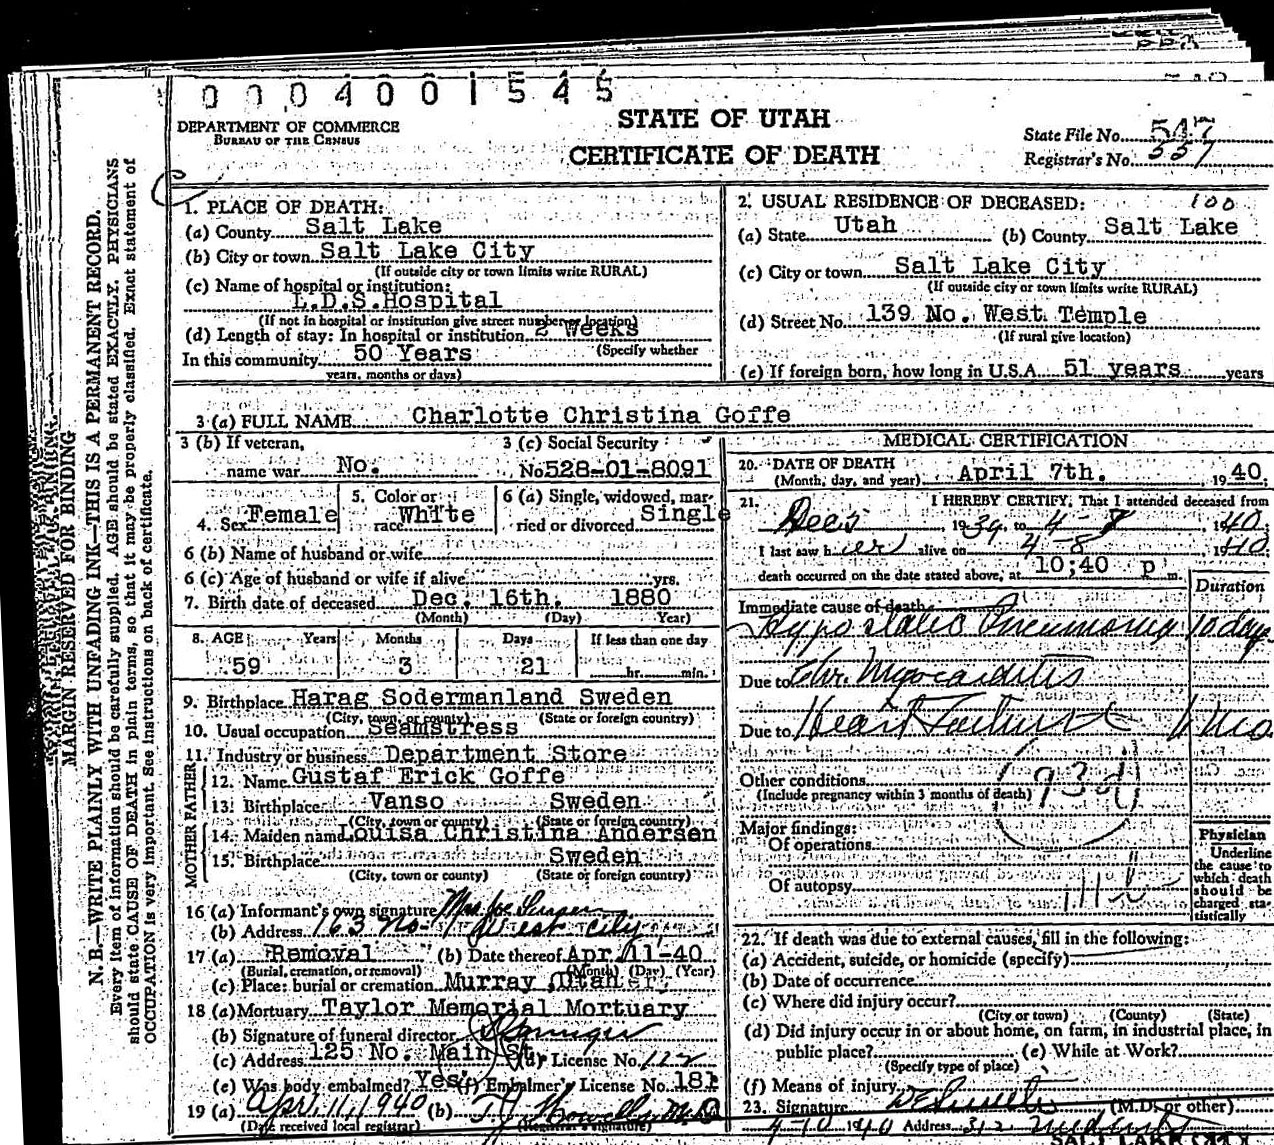 0004001545
DEPARTMENT OF COMMERCE
BUREAU OF THE CENSUS
STATE OF UTAH
CERTIFICATE OF DEATH
State File No. 547
Registrar's No. 557
MARGIN RESERVED FOR BINDING
N. B.—WRITE PLAINLY WITH UNFADING INK—THIS IS A PERMANENT RECORD.
Every item of information should be carefully supplied. AGE should be stated EXACTLY. PHYSICIANS
should state CAUSE OF DEATH in plain terms, so that it may be properly classified. Exact statement of
OCCUPATION is very important. See instructions on back of certificate.
1. PLACE OF DEATH:
(a) County Salt Lake
(b) City or town Salt Lake City
(If outside city or town limits write RURAL)
(c) Name of hospital or institution:
L.D.S.Hospital
(If not in hospital or institution give street number or location)
(d) Length of stay: In hospital or institution 2 Weeks
(Specify whether
In this community 50 Years
years, months or days)
2. USUAL RESIDENCE OF DECEASED: 100
(a) State Utah (b) County Salt Lake
(c) City or town Salt Lake City
(If outside city or town limits write RURAL)
(d) Street No. 139 No. West Temple
(If rural give location)
(e) If foreign born, how long in U.S.A. 51 years years
3 (a) FULL NAME Charlotte Christina Goffe
3 (b) If veteran, 3 (c) Social Security
name war No. No 528-01-8091
4. Sex Female 5. Color or race White 6 (a) Single, widowed, married or divorced Single
6 (b) Name of husband or wife
6 (c) Age of husband or wife if alive yrs.
7. Birth date of deceased Dec. 16th. 1880
(Month) (Day) Year)
8. AGE Years Months Days If less than one day
59 3 21 hr. min.
9. Birthplace Harag Sodermanland Sweden
(City, town or county) (State or foreign country)
10. Usual occupation Seamstress
11. Industry or business Department Store
FATHER
12. Name Gustaf Erick Goffe
13. Birthplace Vanso Sweden
(City, town or county) (State or foreign country)
MOTHER
14. Maiden name Louisa Christina Andersen
15. Birthplace Sweden
(City, town or county) (State or foreign country)
16 (a) Informant's own signature Mrs Joe
(b) Address 163 No. West City
17 (a) Removal (b) Date thereof Apr. 11-40
(Burial, cremation, or removal) (Month) (Day) (Year)
(c) Place: burial or cremation Murray Utah
18 (a) Mortuary Taylor Memorial Mortuary
(b) Signature of funeral director
(c) Address 125 No. Main St. (d) License No. 122
(e) Was body embalmed? Yes (f) Embalmer's License No. 181
19 (a) Apr. 11, 1940 (b)
(Date received local registrar) (Registrar's signature)
MEDICAL CERTIFICATION
20. DATE OF DEATH
(Month, day, and year) April 7th. 1940
21. I HEREBY CERTIFY, That I attended deceased from
Dec 1939, to 4-8, 1940
I last saw her alive on 4-8, 1940
death occurred on the date stated above, at 10;40 p m.
Duration
Immediate cause of death
Hypostatic Pneumonia 10 days
Due to Chr. Myocarditis
Due to Heart Failure
Other conditions
(Include pregnancy within 3 months of death) 93d
Major findings:
Of operations
Of autopsy
Physician
Underline
the cause to
which death
should be
charged sta-
tistically
22. If death was due to external causes, fill in the following:
(a) Accident, suicide, or homicide (specify)
(b) Date of occurrence
(c) Where did injury occur?
(City or town) (County) (State)
(d) Did injury occur in or about home, on farm, in industrial place, in
public place? (e) While at Work?
(Specify type of place)
(f) Means of injury
23. Signature (M.D. or other)
4-10 1940 Address 312